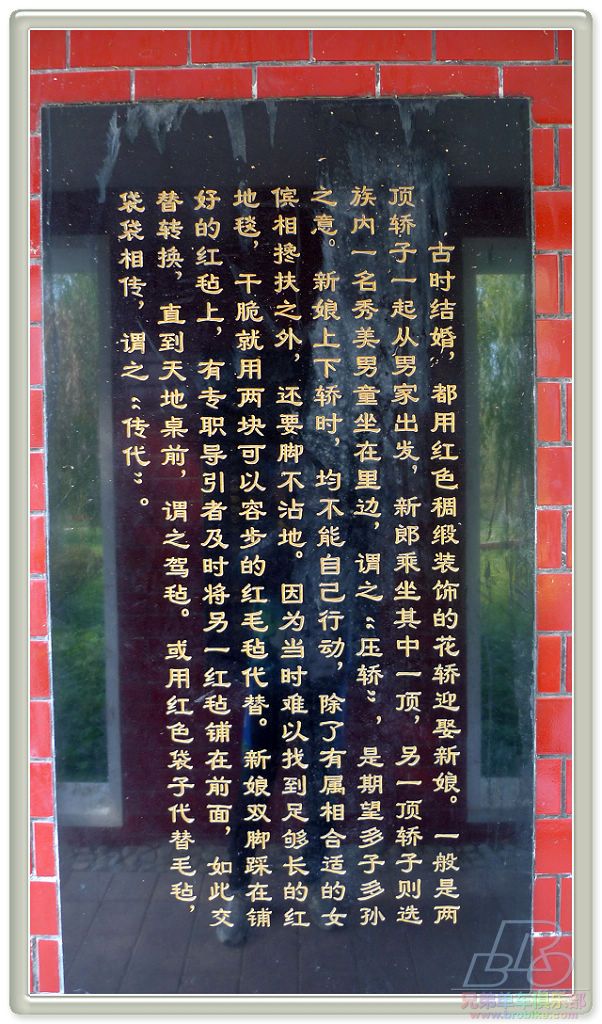 古时结婚，都用红色稠缎装饰的花轿迎娶新娘。一般是两
顶轿子一起从男家出发，新郎乘坐其中一顶，另一顶轿子则选
族内一名秀美男童坐在里边，谓之“压轿”，是期望多子多孙
之意。新娘上下轿时，均不能自己行动，除了有属相合适的女
傧相搀扶之外，还要脚不沾地。因为当时难以找到足够长的红
地毯，干脆就用两块可以容步的红毛毡代替。新娘双脚踩在铺
好的红毡上，有专职导引者及时将另一红毡铺在前面，如此交
替转换，直到天地桌前，谓之驾毡。或用红色袋子代替毛毡，
袋袋相传，谓之“传代”。
BRO
兄弟单车俱乐部
www.brobike.com